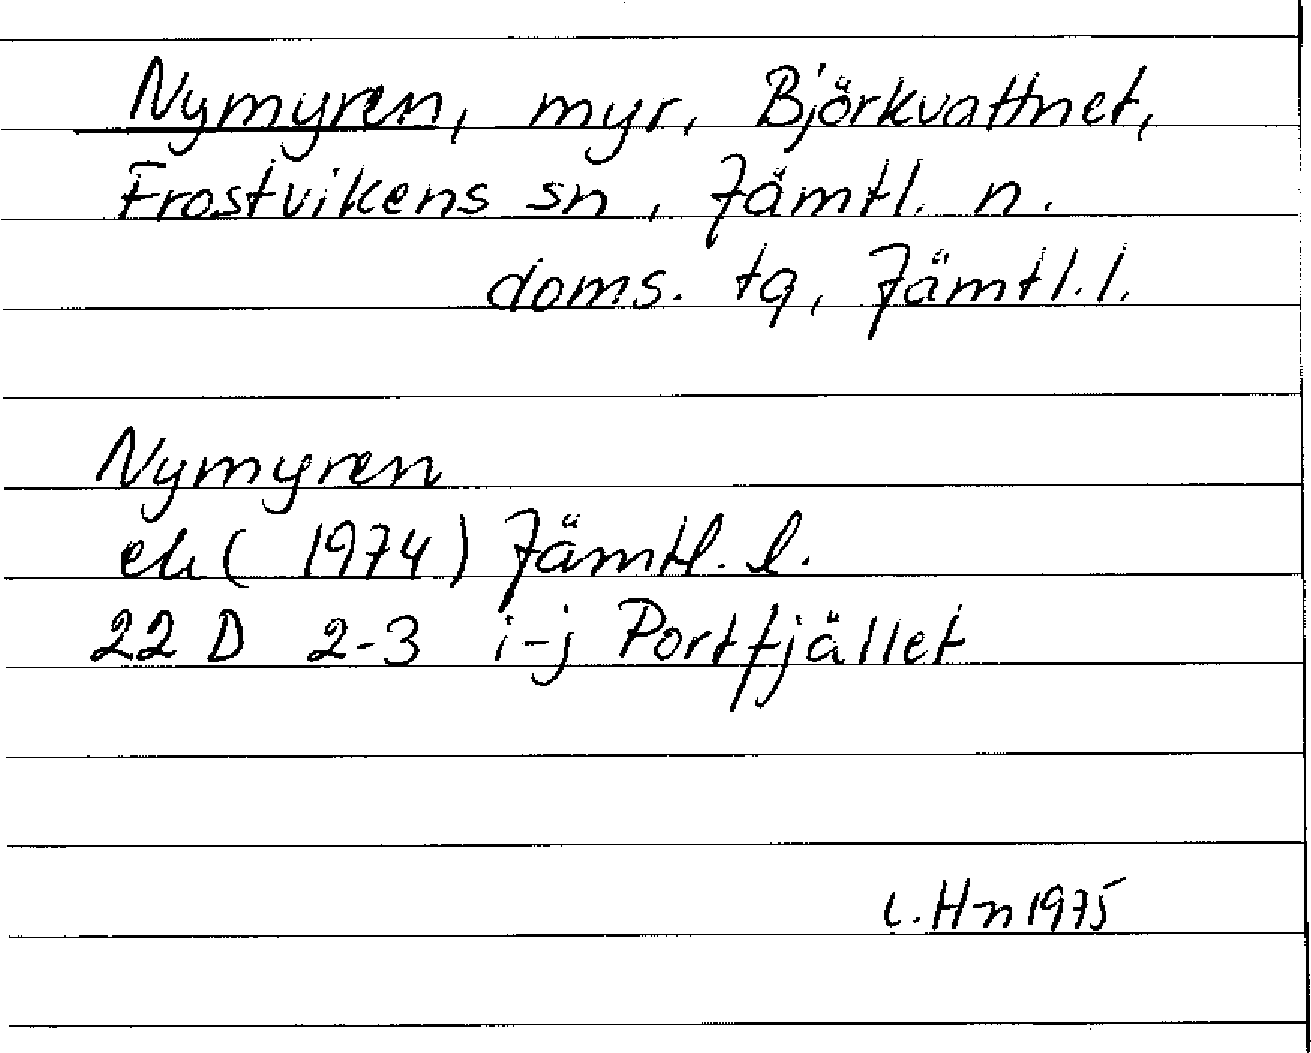 Nymyren, myr, Björkvattnet,
Frostvikens sn, Jämtl. n.
doms. tg, Jämtl. l.
Nymyren
ek (1974) Jämtl. l.
22 D 2-3 i-j Portfjället
C. Hn 1975